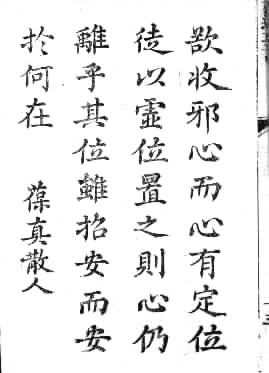 欲收邪心而心有定位
徒以虛位置之則心仍
離乎其位雖招安而安
扵何在　葆真散人